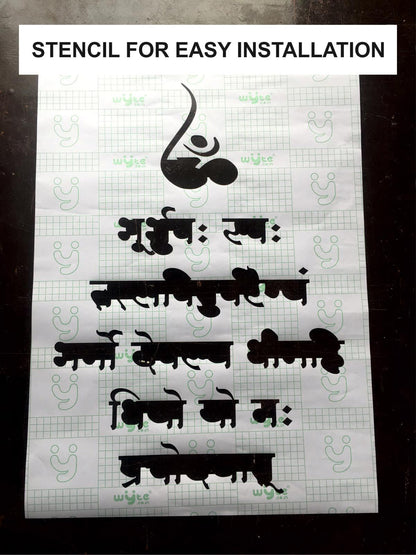 STENCIL FOR EASY INSTALLATION
wyte wyte
wyte wyte
ॐ
भूर्भुवः स्वः
तत्सवितुर्वरेण्यं
भर्गो देवस्य धीमहि
धियो यो नः
प्रचोदयात्
wyte wyte